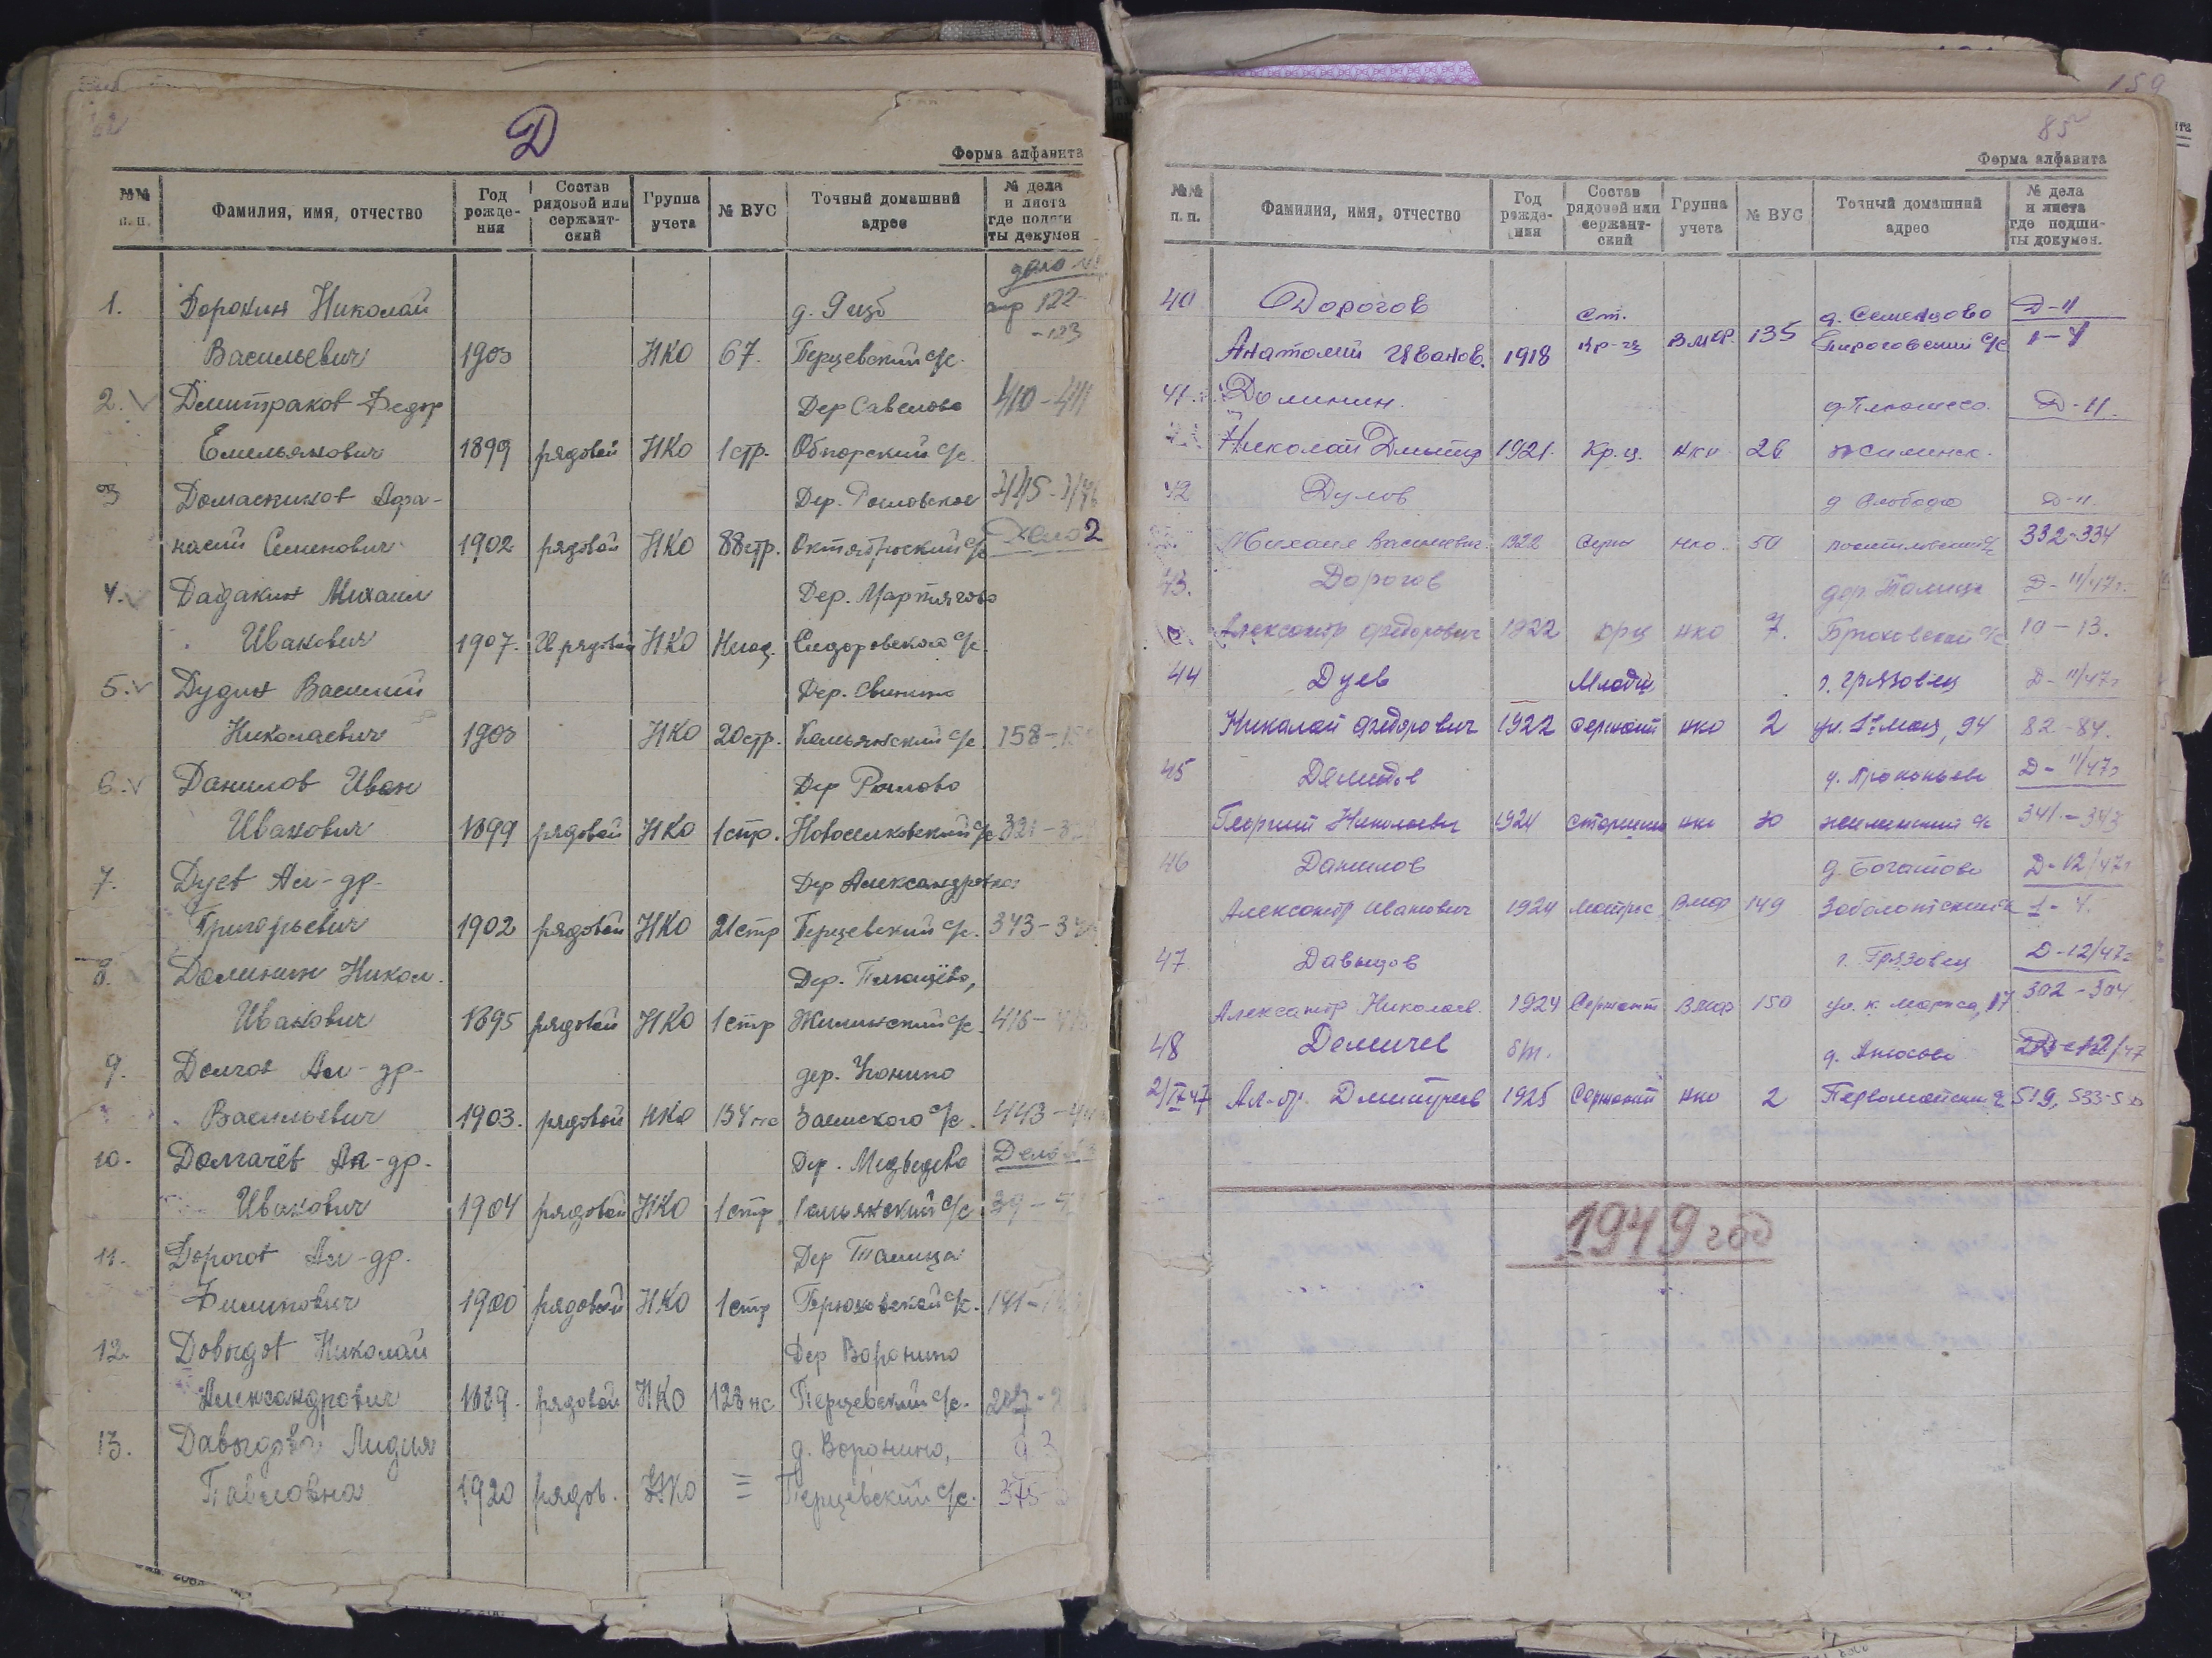 Д
Форма алфавита
№№ п. п. Фамилия, имя, отчество Год рожде-ния Состав рядовой или сержант-ский Группа учета № ВУС Точный домашний адрес № дела и листа где подши ты докумен
дело №
1. Дорокин Николай д. 122-
Васильевич 1903 НКО 67. Перцевский с/с. -123
2. Дмитраков Федор Дер Савелово 410-411
Емельянович 1899 рядовой НКО 1 стр. Обнорский с/с.
3 Домасников Афа- Дер. 445-
насий Семенович 1902 рядовой НКО 88 стр. Октябрьский с/с Дело 2
4. Дадакин Михаил Дер. Мартягово
Иванович 1907. рядовой НКО Сидоровского с/с.
5. Дудин Василий Дер. Свинино
Николаевич 1903 НКО 20 стр. Комьянский с/с. 158-
6. Данилов Иван Дер
Иванович 1899 рядовой НКО 1 стр. Новоселковский с/с 321-
7. Дуев Ал-др. Дер Александровка
Григорьевич 1902 рядовой НКО 21 стр Перцевский с/с. 343-
8. Долинин Никол. Дер. Плющево,
Иванович 1895 рядовой НКО 1 стр Жилинский с/с. 416-
9. Долгов Ал-др- дер. Конино
Васильевич 1903. рядовой НКО 134 с/с. 443-
10. Долгачёв Ал-др. Дер. Медведево Дело
Иванович 1904 рядовой НКО 1 стр Комьянский с/с 39-
11. Дорогов Ал-др. Дер Талица
Филипович 1900 рядовой НКО 1 стр Брюховский с/с. 141-
12. Довыдов Николай Дер Воронино
Александрович 1889. рядовой НКО 123 нс Перцевский с/с. 287-
13. Давыдова Лидия д. Воронино, д 3
Павловна 1920 рядов. НКО = Перцевский с/с. 375-
159
85
Форма алфавита
№№ п. п. Фамилия, имя, отчество Год рожде-ния Состав рядовой или сержант-ский Группа учета № ВУС Точный домашний адрес № дела и листа где подши-ты докумен.
40 Дорогов ст. д. Семенцово Д-11
Анатолий Иванов. 1918 кр-ц ВМФ. 135 Пироговский с/с 1-4
41. Долинин. д. Плющево. Д-11.
Николай Дмитр 1921. Кр.ц. нко 26 Жилинск.
42 Дулов д Слобода Д-11.
Михаил Васильевич 1922 нко. 50 332-334
43. Дорогов дер. Талица Д-11/47г.
Александр Федорович 1922 крц нко 7. Брюховский с/с 10-13.
44 Дуев Младш г. Грязовец Д-11/47г
Николай Федорович 1922 сержант нко 2 ул. 1е мая, 94 82-84.
45 Демидов д. Прокопьево Д-11/47г
Георгий Николаевич 1924 старшина нко 30 жилинский с/с 341-343
46 Данилов д. Богатово Д-12/47г
Александр Иванович 1924 матрос ВМФ 149 Заболотский с/с 1-4.
47 Давыдов г. Грязовец Д-12/47г
Александр Николаев. 1924 Сержант ВМФ 150 ул. К. Маркса, 17 302-304
48 Демичев ст. д. Аносово Д-12/47
2/IX 47 Ал-др. Дмитриев 1925 Сержант нко 2 Первомайский с/с 519, 533-
1949 год